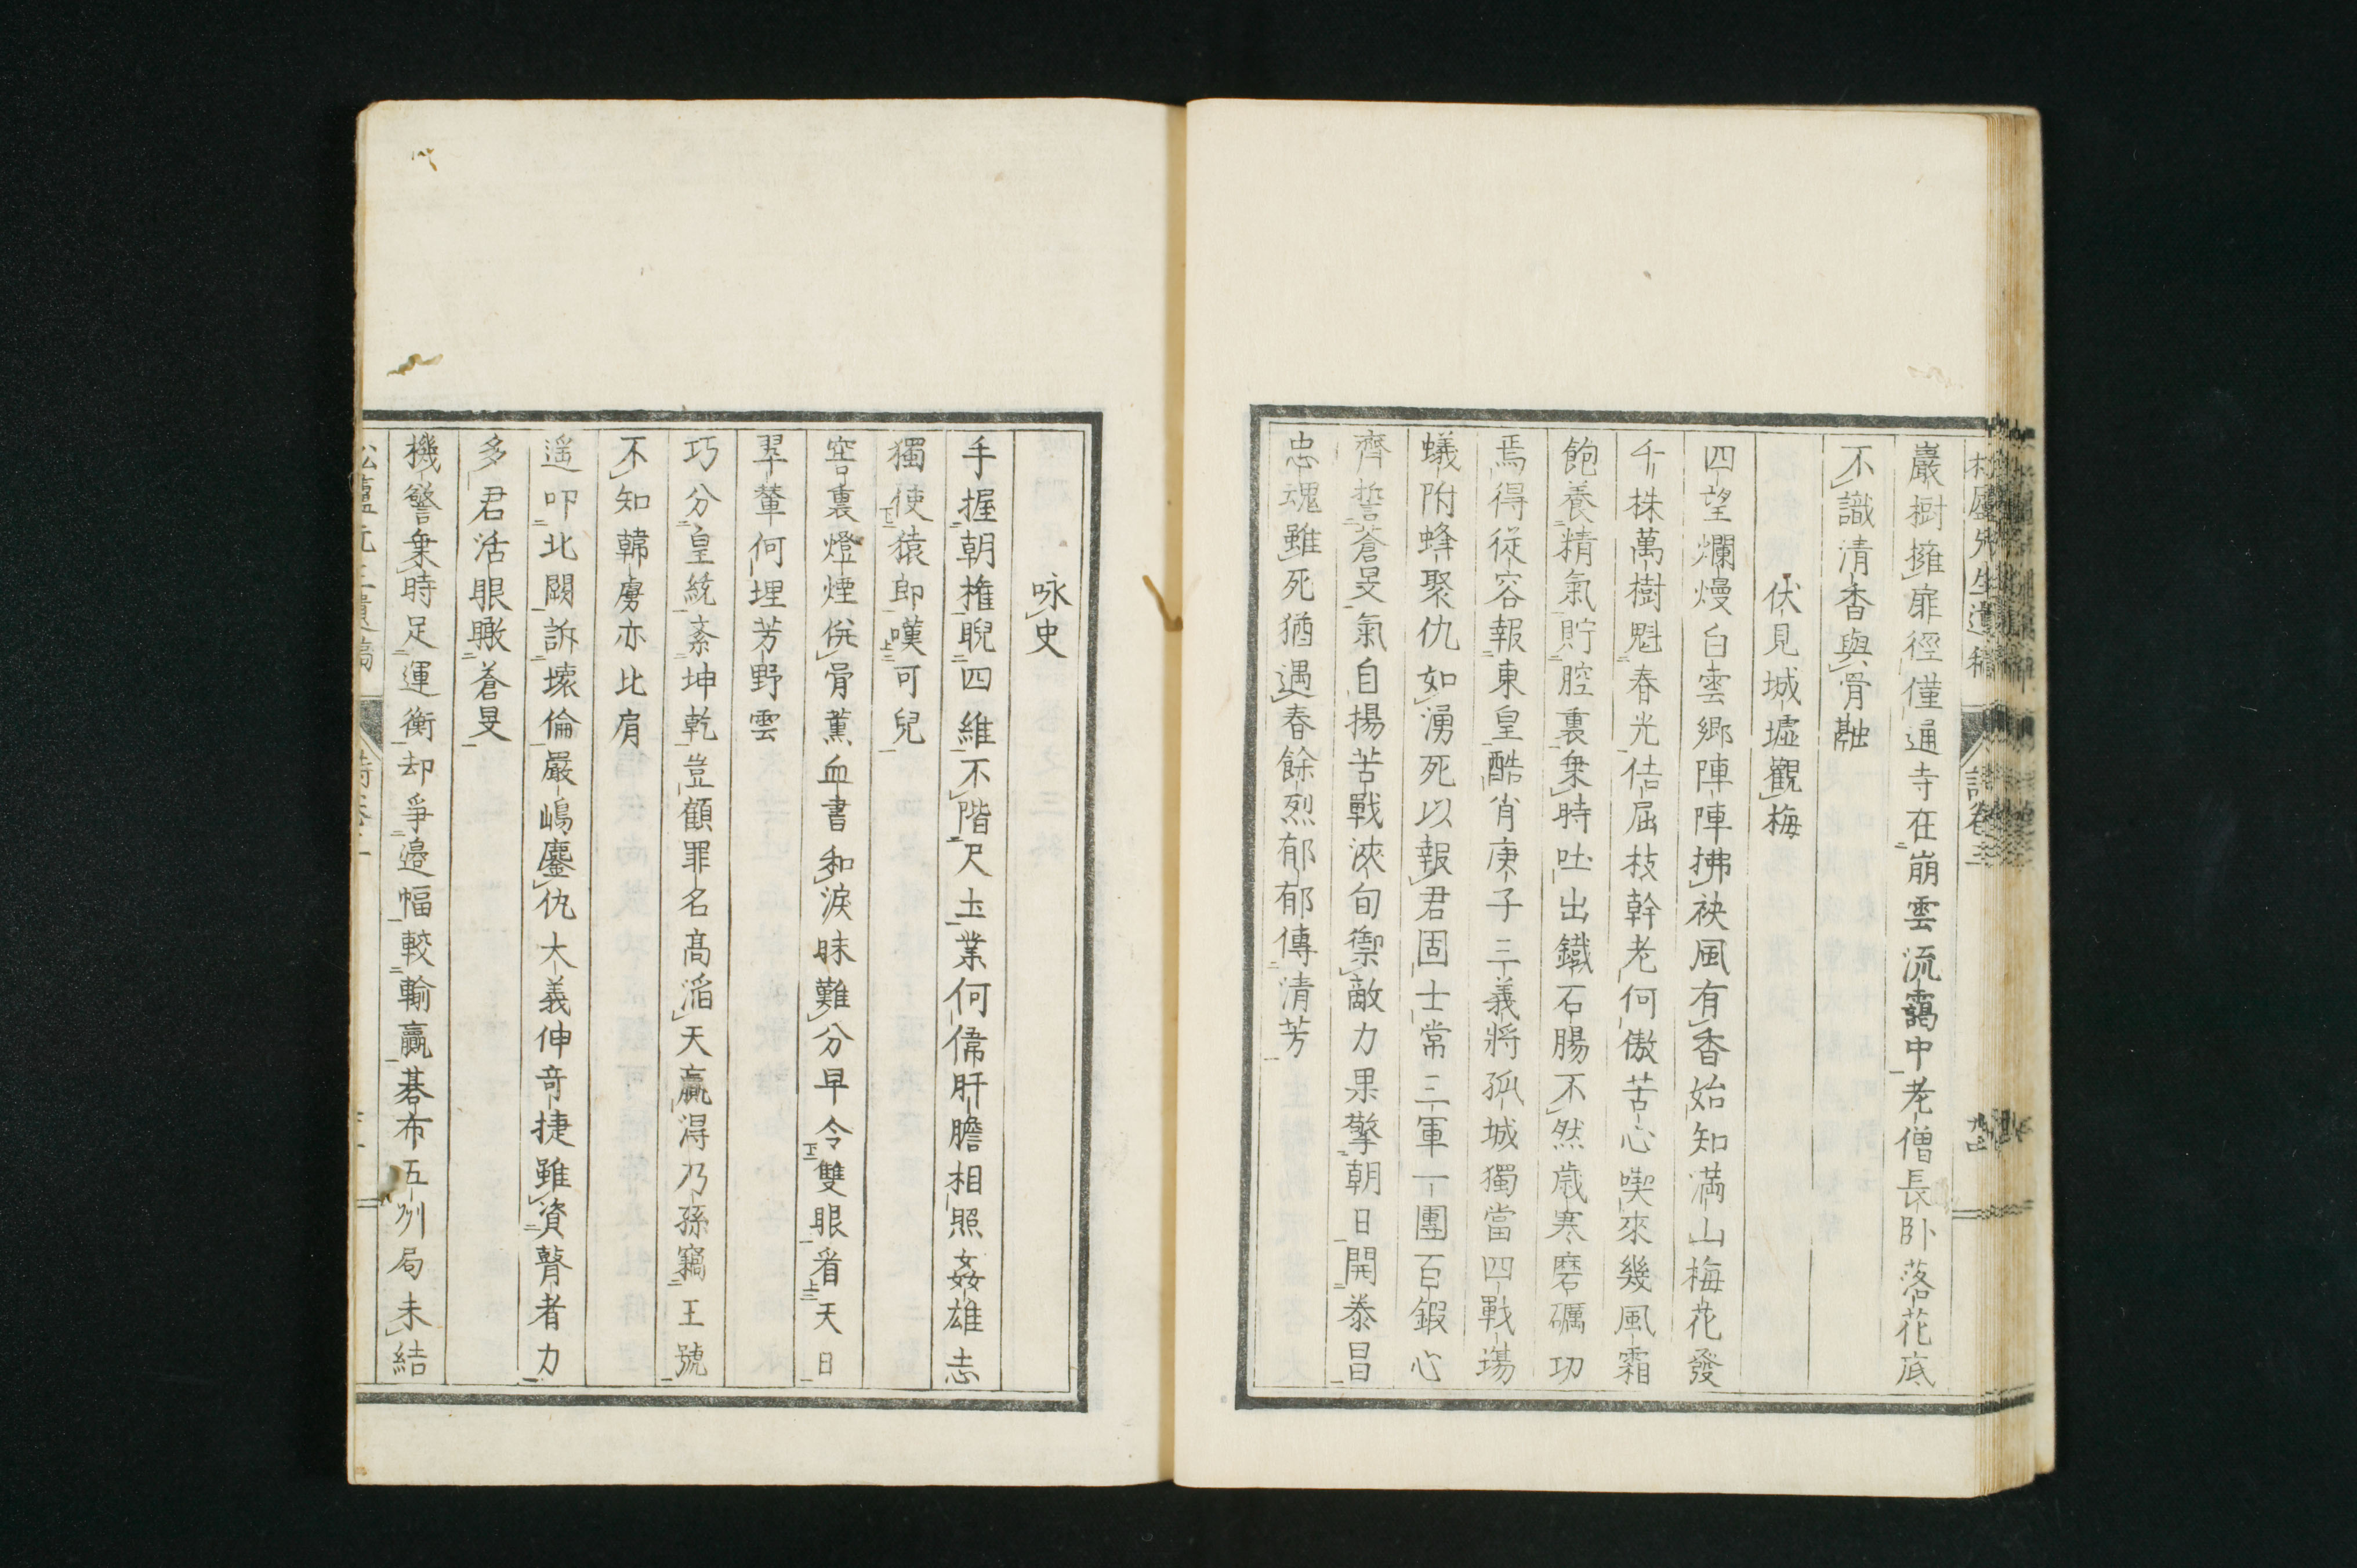 巖樹擁扉徑僅通寺在崩雲流靄中老僧長卧落花底
不識清香與骨融
伏見城墟觀梅
四望爛熳白雲鄉陣陣拂袂風有香始知滿山梅花發
千株萬樹魁春光佶屈枝幹老何傲苦心喫來幾風霜
飽養精氣貯腔裏乘時吐出鐵石腸不然歲寒磨礪功
焉得從容報東皇酷肖庚子三義將孤城獨當四戰場
蟻附蜂聚仇如湧死以報君固士常三軍一團百鍛心
齊誓蒼旻氣自揚苦戰浹旬禦敵力果擎朝日開泰昌
忠魂雖死猶遇春餘烈郁郁傳清芳
詠史
手握朝權睨四維不階尺土業何偉肝膽相照姦雄志
獨使猿郎嘆可兒
窖裏燈煙侁骨薫血書和淚昧難分早令雙眼看天日
翠輦何埋芳野雲
巧分皇統紊坤乾豈顧罪名高滔天贏得乃孫竊王號
不知韓虜亦比肩
遥叩北闕訴壞倫嚴嶋鏖仇大義伸奇捷雖資瞽者力
多君活眼瞰蒼旻
機警乘時足運衡却爭邉幅較輸贏碁布五州局未結
詩卷三